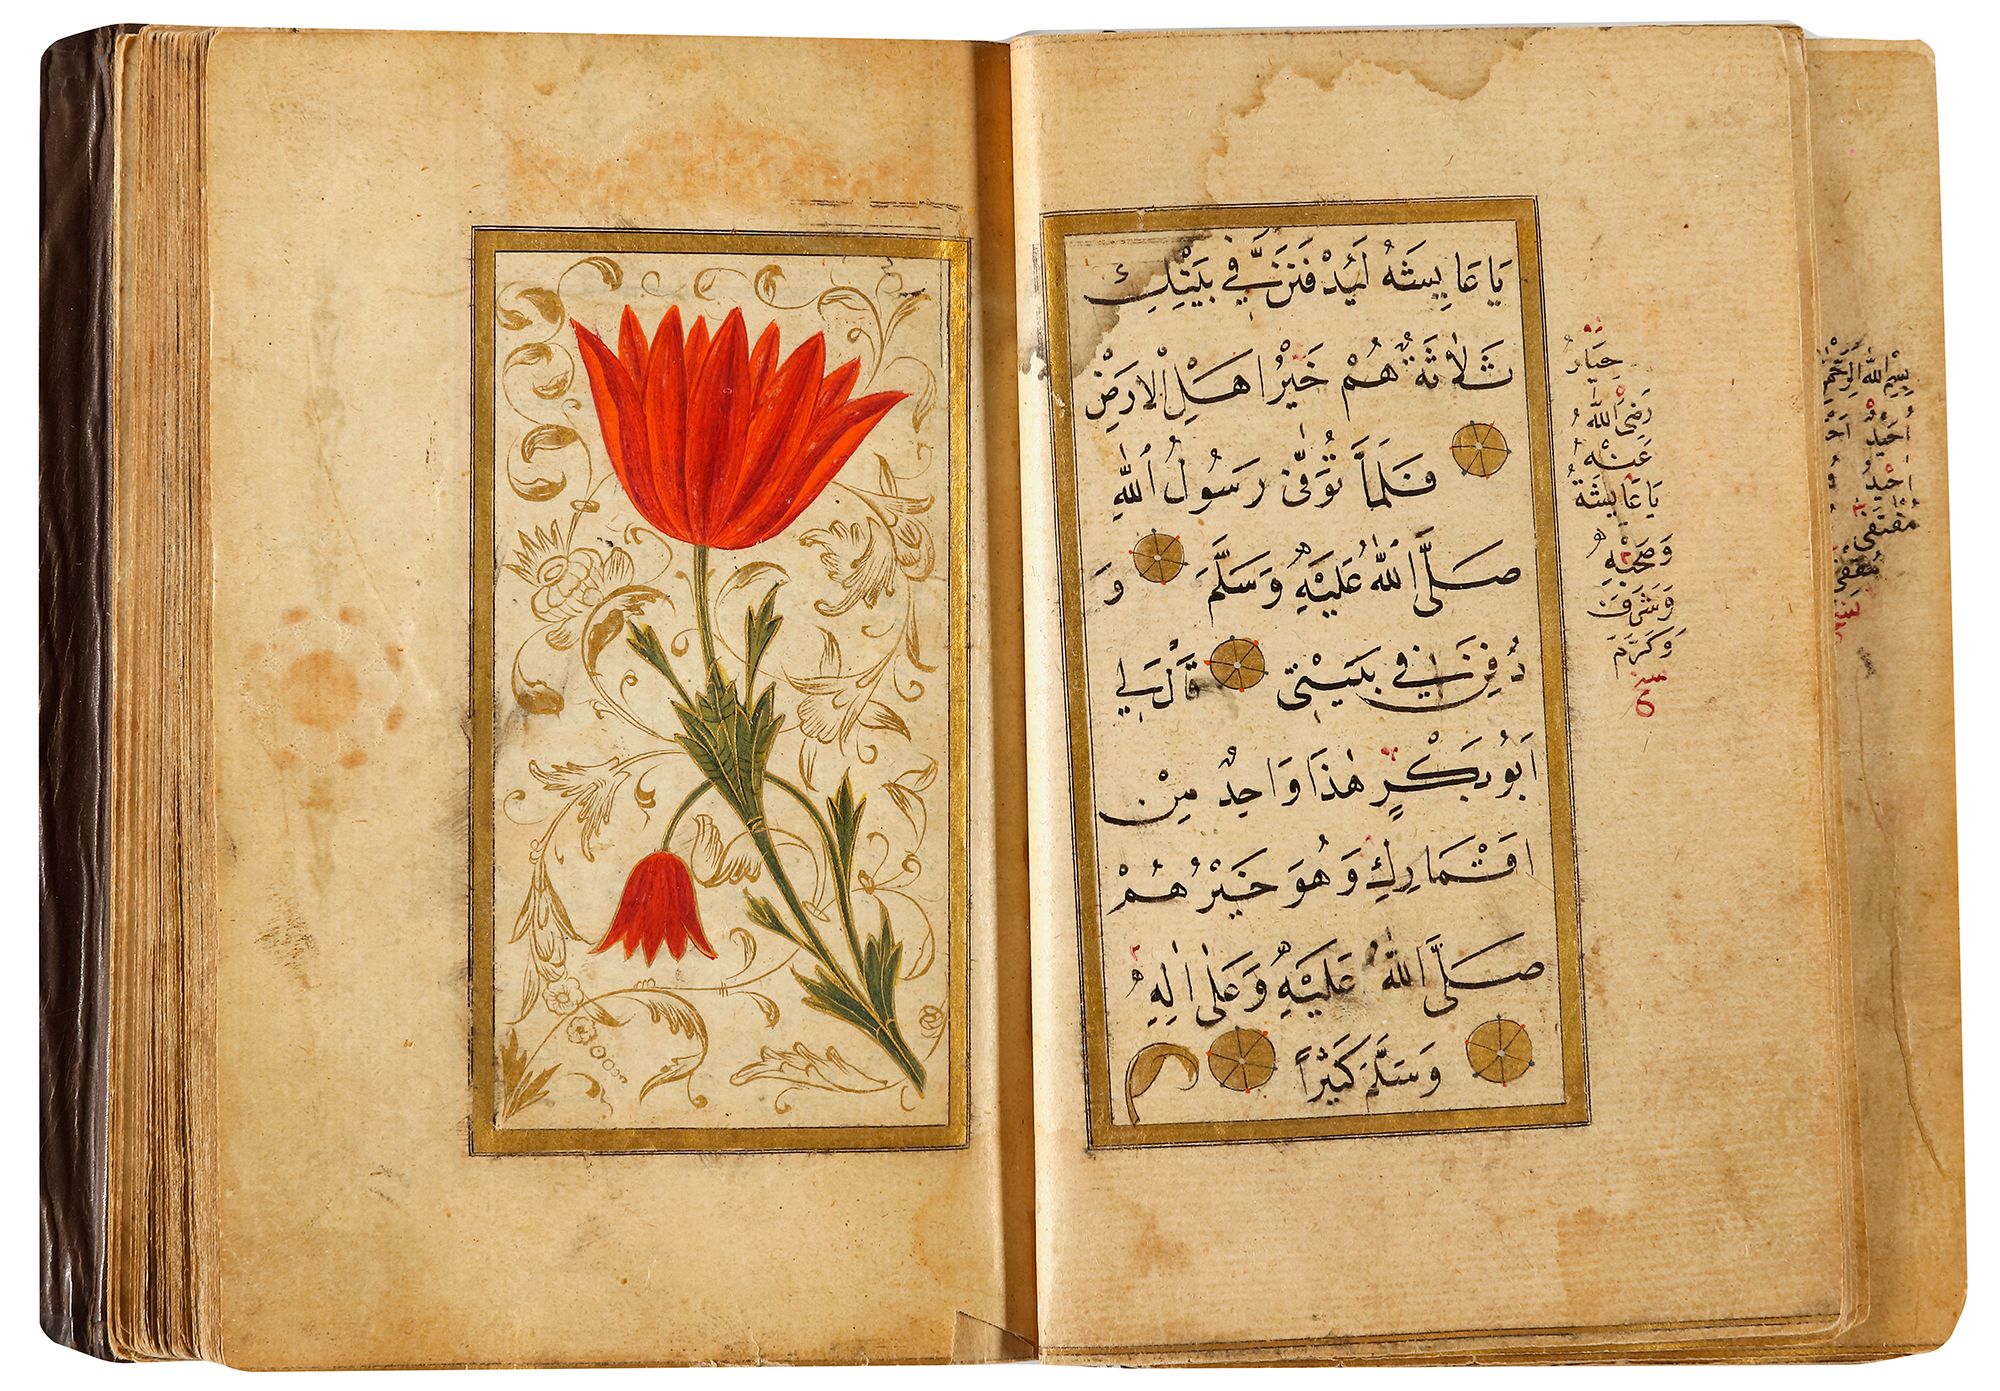 يَا عَايِشَةُ لَيُدْفَنَنَّ فِي بَيْتِكِ
ثَلَاثَةٌ هُمْ خَيْرُ اَهْلِ الْاَرَضْ
فَلَمَّا تُوَفّٰى رَسُولُ اللّٰهِ
صَلَّى اللّٰهُ عَلَيْهِ وَسَلَّمَ وَ
دُفِنَ فِي بَيْتِى قَالَ لِي
اَبُو بَكْرٍ هٰذَا وَاحِدٌ مِنْ
اَقْمَارِكِ وَهُوَ خَيْرُهُمْ
صَلَّى اللّٰهُ عَلَيْهِ وَعَلٰى اٰلِهِ
وَسَلَّمَ كَثِيرًا
رَضِىَ اللّٰهُ
عَنْهُ
يَا عَايِشَةُ
وَصَحْبِهِ
وَشَرَّفَ
وَكَرَّمَ
بِسْمِ اللّٰهِ الرَّحْمٰنِ
اُحِيدٌ
اُحِيدُ
مُقْتَفِى